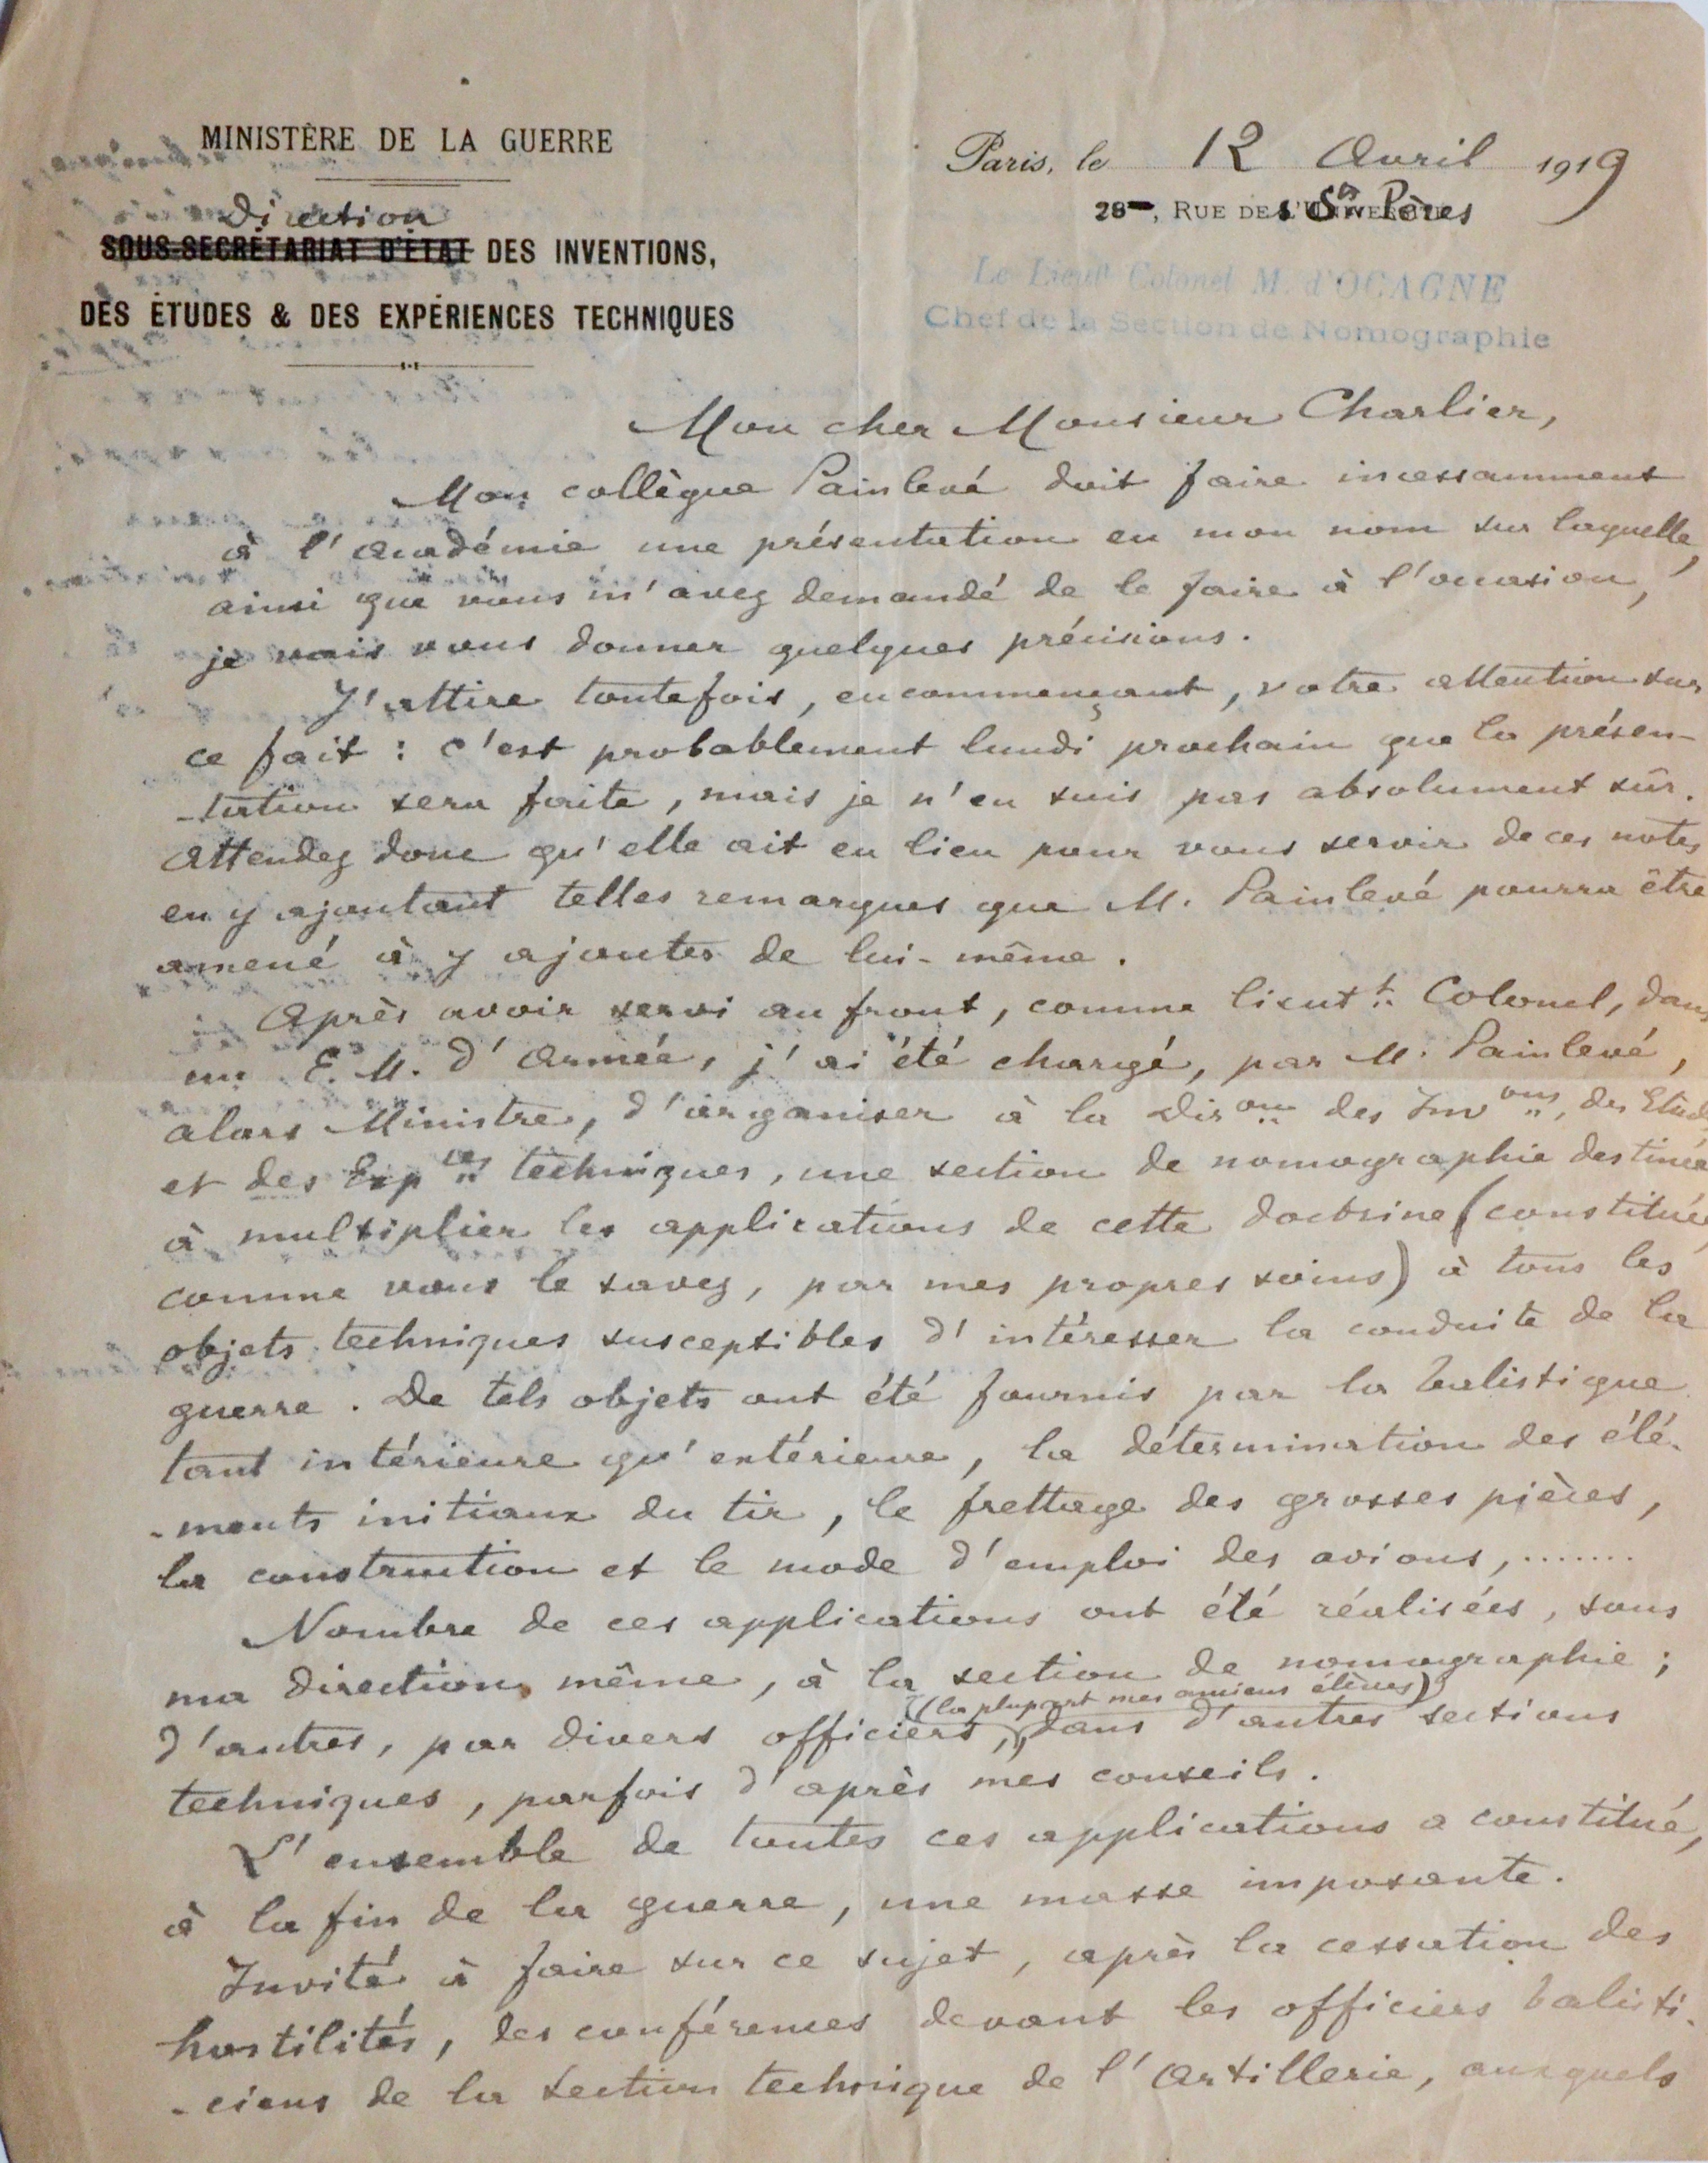 MINISTÈRE DE LA GUERRE
Direction
SOUS-SECRÉTARIAT D'ÉTAT DES INVENTIONS,
DES ÉTUDES & DES EXPÉRIENCES TECHNIQUES
Paris, le 12 Avril 1919
28, RUE DE L'UNIVERSITÉ s Sts Pères
Le Lieutt Colonel M. d'OCAGNE
Chef de la Section de Nomographie
Mon cher Monsieur Charlier,
Mon collègue Painlevé doit faire incessamment
à l'Académie une présentation en mon nom sur laquelle,
ainsi que vous m'avez demandé de le faire à l'occasion,
je vais vous donner quelques précisions.
J'attire toutefois, en commençant, votre attention sur
ce fait : c'est probablement lundi prochain que la présen-
-tation sera faite, mais je n'en suis pas absolument sûr.
Attendez donc qu'elle ait eu lieu pour vous servir de ces notes
en y ajoutant telles remarques que M. Painlevé pourra être
amené à y ajouter de lui-même.
Après avoir servi au front, comme lieutt Colonel, dans
un E. M. d'Armée, j'ai été chargé, par M. Painlevé,
alors Ministre, d'organiser à la Dir.on des Inv.ons, des Etud
et des Exp.ces techniques, une section de nomographie destinée
à multiplier les applications de cette doctrine (constituée,
comme vous le savez, par mes propres soins) à tous les
objets techniques susceptibles d'intéresser la conduite de la
guerre. De tels objets ont été fournis par la balistique
tant intérieure qu'extérieure, la détermination des élé-
-ments initiaux du tir, le frettage des grosses pièces,
la construction et le mode d'emploi des avions, .......
Nombre de ces applications ont été réalisées, sous
ma direction même, à la section de nomographie ;
(la plupart mes anciens élèves)
d'autres, par divers officiers, dans d'autres sections
techniques, parfois d'après mes conseils.
L'ensemble de toutes ces applications a constitué,
à la fin de la guerre, une masse imposante.
Invité à faire sur ce sujet, après la cessation des
hostilités, des conférences devant les officiers balisti-
-ciens de la Section technique de l'Artillerie, auxquels